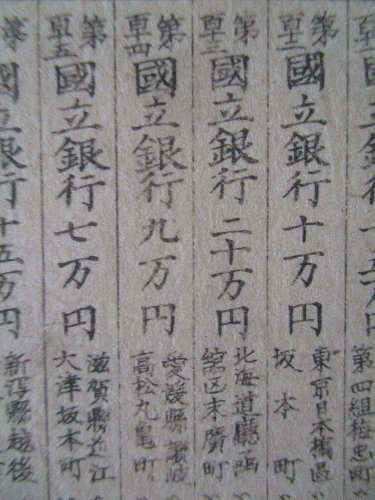 第四組梅忠町
第百十二
國立銀行十万円
東京日本橋區
坂本町
第百十三
國立銀行二十万円
北海道廳函
舘区末廣町
第百十四
國立銀行九万円
愛媛縣讃岐
高松丸亀町
第百十五
國立銀行七万円
滋賀縣近江
大津坂本町
第
國立銀行十五万円
新潟縣越後